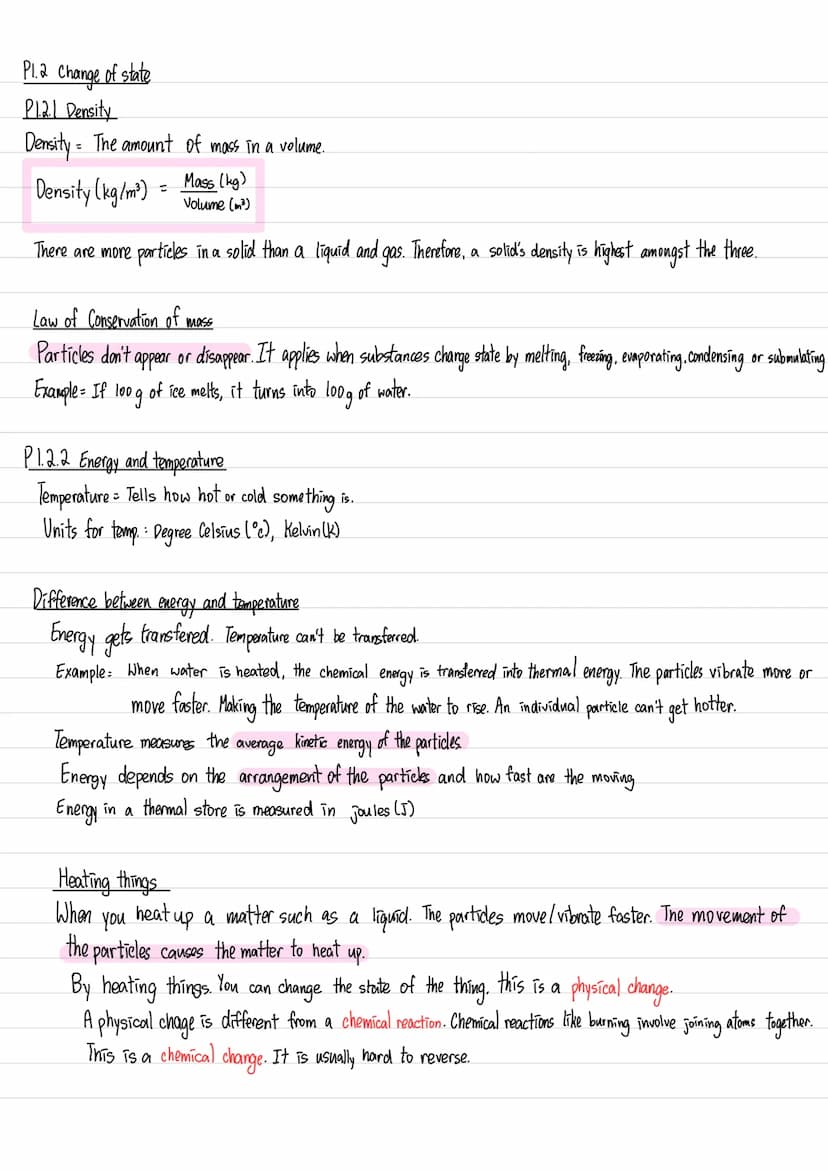 P1.2 Change of state
P1.2.1 Density
Density = The amount of mass in a volume.
Density (kg/m³) = Mass (kg)
Volume (m³)
There are more particles in a solid than a liquid and gas. Therefore, a solid's density is highest amongst the three.
Law of Conservation of mass
Particles don't appear or disappear. It applies when substances change state by melting, freezing, evaporating, condensing or submulating
Example = If 100 g of ice melts, it turns into 100 g of water.
P1.2.2 Energy and temperature
Temperature = Tells how hot or cold something is.
Units for temp. : Degree Celsius (°c), Kelvin (K)
Difference between energy and temperature
Energy gets transfered. Temperature can't be transferred.
Example: When water is heated, the chemical energy is transferred into thermal energy. The particles vibrate more or
move faster. Making the temperature of the water to rise. An individual particle can't get hotter.
Temperature measures the average kinetic energy of the particles
Energy depends on the arrangement of the particles and how fast are the moving
Energy in a thermal store is measured in joules (J)
Heating things
When you heat up a matter such as a liquid. The particles move/vibrate faster. The movement of
the particles causes the matter to heat up.
By heating things. You can change the state of the thing, this is a physical change.
A physical chage is different from a chemical reaction. Chemical reactions like burning involve joining atoms together.
This is a chemical change. It is usually hard to reverse.